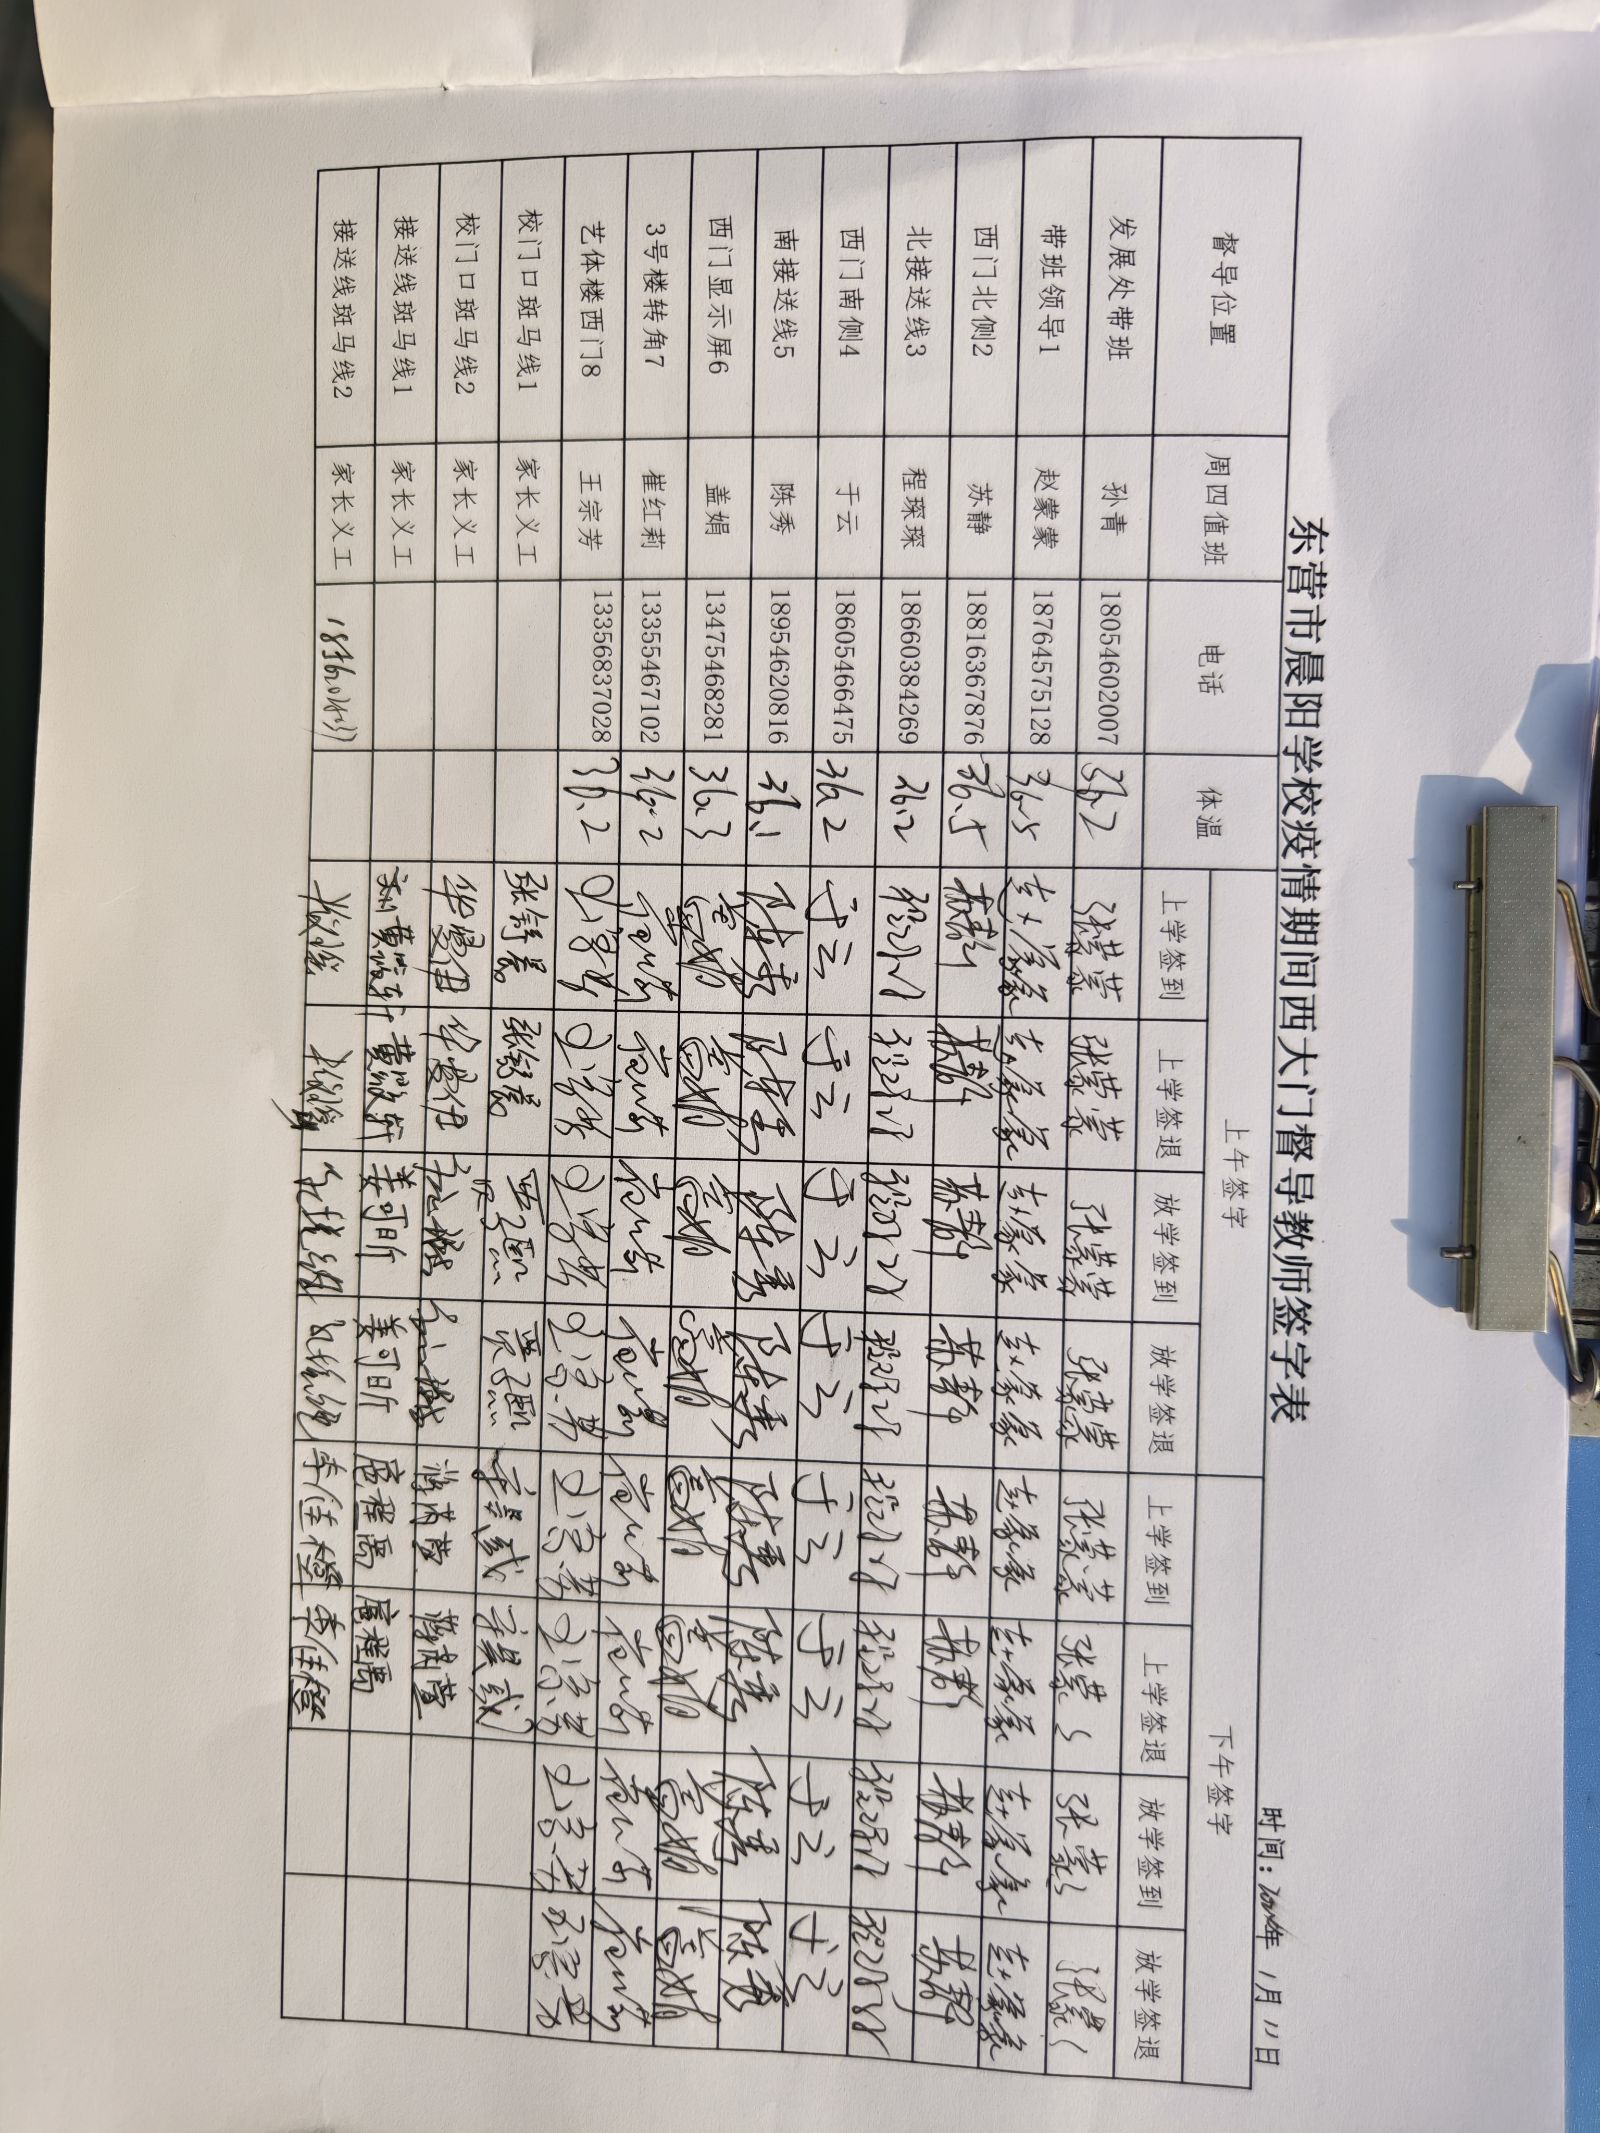 东营市晨阳学校疫情期间西大门督导教师签字表
时间：2024年 1月 11日
督导位置 周四值班 电话 体温 上午签字 下午签字
上学签到 上学签退 放学签到 放学签退 上学签到 上学签退 放学签到 放学签退
发展处带班 孙青 18054602007 36.2
带班领导1 赵蒙蒙 18764575128 36.5 赵蒙蒙 赵蒙蒙 赵蒙蒙 赵蒙蒙 赵蒙蒙 赵蒙蒙 赵蒙蒙 赵蒙蒙
西门北侧2 苏静 18816367876 36.5 苏静 苏静 苏静 苏静 苏静 苏静 苏静 苏静
北接送线3 程琛琛 18660384269 36.2 程琛琛 程琛琛 程琛琛 程琛琛 程琛琛 程琛琛 程琛琛 程琛琛
西门南侧4 于云 18605466475 36.2 于云 于云 于云 于云 于云 于云 于云 于云
南接送线5 陈秀 18954620816 36.1 陈秀 陈秀 陈秀 陈秀 陈秀 陈秀 陈秀 陈秀
西门显示屏6 盖娟 13475468281 36.3 盖娟 盖娟 盖娟 盖娟 盖娟 盖娟 盖娟 盖娟
3号楼转角7 崔红莉 13355467102 36.2 崔红莉 崔红莉 崔红莉 崔红莉 崔红莉 崔红莉 崔红莉 崔红莉
艺体楼西门8 王宗芳 13356837028 36.2 王宗芳 王宗芳 王宗芳 王宗芳 王宗芳 王宗芳 王宗芳 王宗芳
校门口斑马线1 家长义工
校门口斑马线2 家长义工
接送线斑马线1 家长义工 姜可昕 姜可昕
接送线斑马线2 家长义工 李佳橙 李佳橙